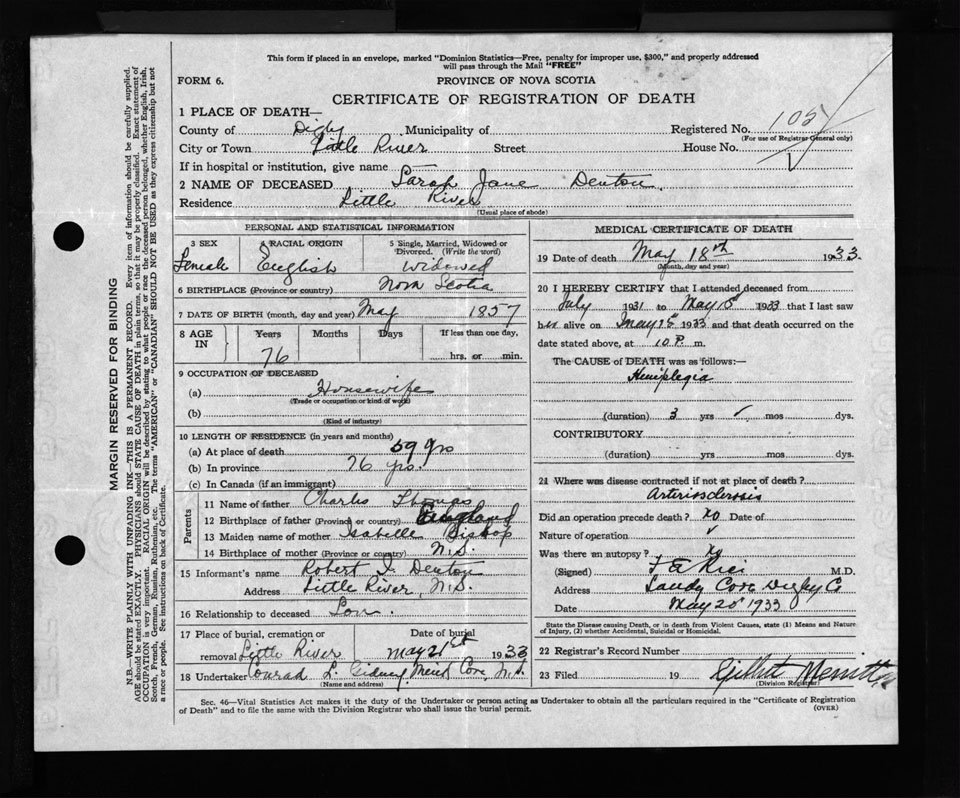 This form if placed in an envelope, marked "Dominion Statistics—Free, penalty for improper use, $300," and properly addressed
will pass through the Mail "FREE"
FORM 6.
PROVINCE OF NOVA SCOTIA
CERTIFICATE OF REGISTRATION OF DEATH
1 PLACE OF DEATH—
County of Digby Municipality of Registered No. 105
(For use of Registrar General only)
City or Town Little River Street House No.
If in hospital or institution, give name
2 NAME OF DECEASED Sarah Jane Denton
Residence Little River
(Usual place of abode)
PERSONAL AND STATISTICAL INFORMATION
3 SEX 4 RACIAL ORIGIN 5 Single, Married, Widowed or
Divorced. (Write the word)
Female English Widowed
6 BIRTHPLACE (Province or country) Nova Scotia
7 DATE OF BIRTH (month, day and year) May 1857
8 AGE IN Years Months Days If less than one day,
76 hrs. or min.
9 OCCUPATION OF DECEASED
(a) Housewife
(Trade or occupation or kind of work)
(b)
(Kind of industry)
10 LENGTH OF RESIDENCE (in years and months)
(a) At place of death 59 yrs
(b) In province 76 yrs.
(c) In Canada (if an immigrant)
Parents
11 Name of father Charles Thomas
12 Birthplace of father (Province or country) England
13 Maiden name of mother Isabelle Bishop
14 Birthplace of mother (Province or country) N.S.
15 Informant's name Robert Denton
Address Little River, N.S.
16 Relationship to deceased Son.
17 Place of burial, cremation or Date of burial
removal Little River May 21st 1933
18 Undertaker Conrad L. Gidney Mink Cove N.S.
(Name and address)
MEDICAL CERTIFICATE OF DEATH
19 Date of death May 18th 1933.
(Month, day and year)
20 I HEREBY CERTIFY that I attended deceased from
July 1931 to May 1933 that I last saw
her alive on May 1933 and that death occurred on the
date stated above, at 10 P. m.
The CAUSE of DEATH was as follows:—
Hemiplegia
(duration) 3 yrs mos dys.
CONTRIBUTORY
(duration) yrs mos dys.
21 Where was disease contracted if not at place of death?
Arteriosclerosis
Did an operation precede death? no Date of
Nature of operation
Was there an autopsy? no
(Signed) F A Rice M.D.
Address Sandy Cove Digby Co
Date May 20 1933
State the Disease causing Death, or in death from Violent Causes, state (1) Means and Nature
of Injury, (2) whether Accidental, Suicidal or Homicidal.
22 Registrar's Record Number
23 Filed 19 Merritt
(Division Registrar)
Sec. 46—Vital Statistics Act makes it the duty of the Undertaker or person acting as Undertaker to obtain all the particulars required in the "Certificate of Registration
of Death" and to file the same with the Division Registrar who shall issue the burial permit.
(OVER)
MARGIN RESERVED FOR BINDING
N.B.—WRITE PLAINLY WITH UNFADING INK—THIS IS A PERMANENT RECORD. Every item of information should be carefully supplied.
AGE should be stated EXACTLY. PHYSICIANS should STATE CAUSE OF DEATH in plain terms, so that it may be properly classified. Exact statement of
OCCUPATION is very important. RACIAL ORIGIN will be described by stating to what people or race the deceased person belonged, whether English, Irish,
Scotch, French, German, Russian, Ruthenian, etc. The terms "AMERICAN" or "CANADIAN" SHOULD NOT BE USED as they express citizenship but not
a race or people. See instructions on back of Certificate.